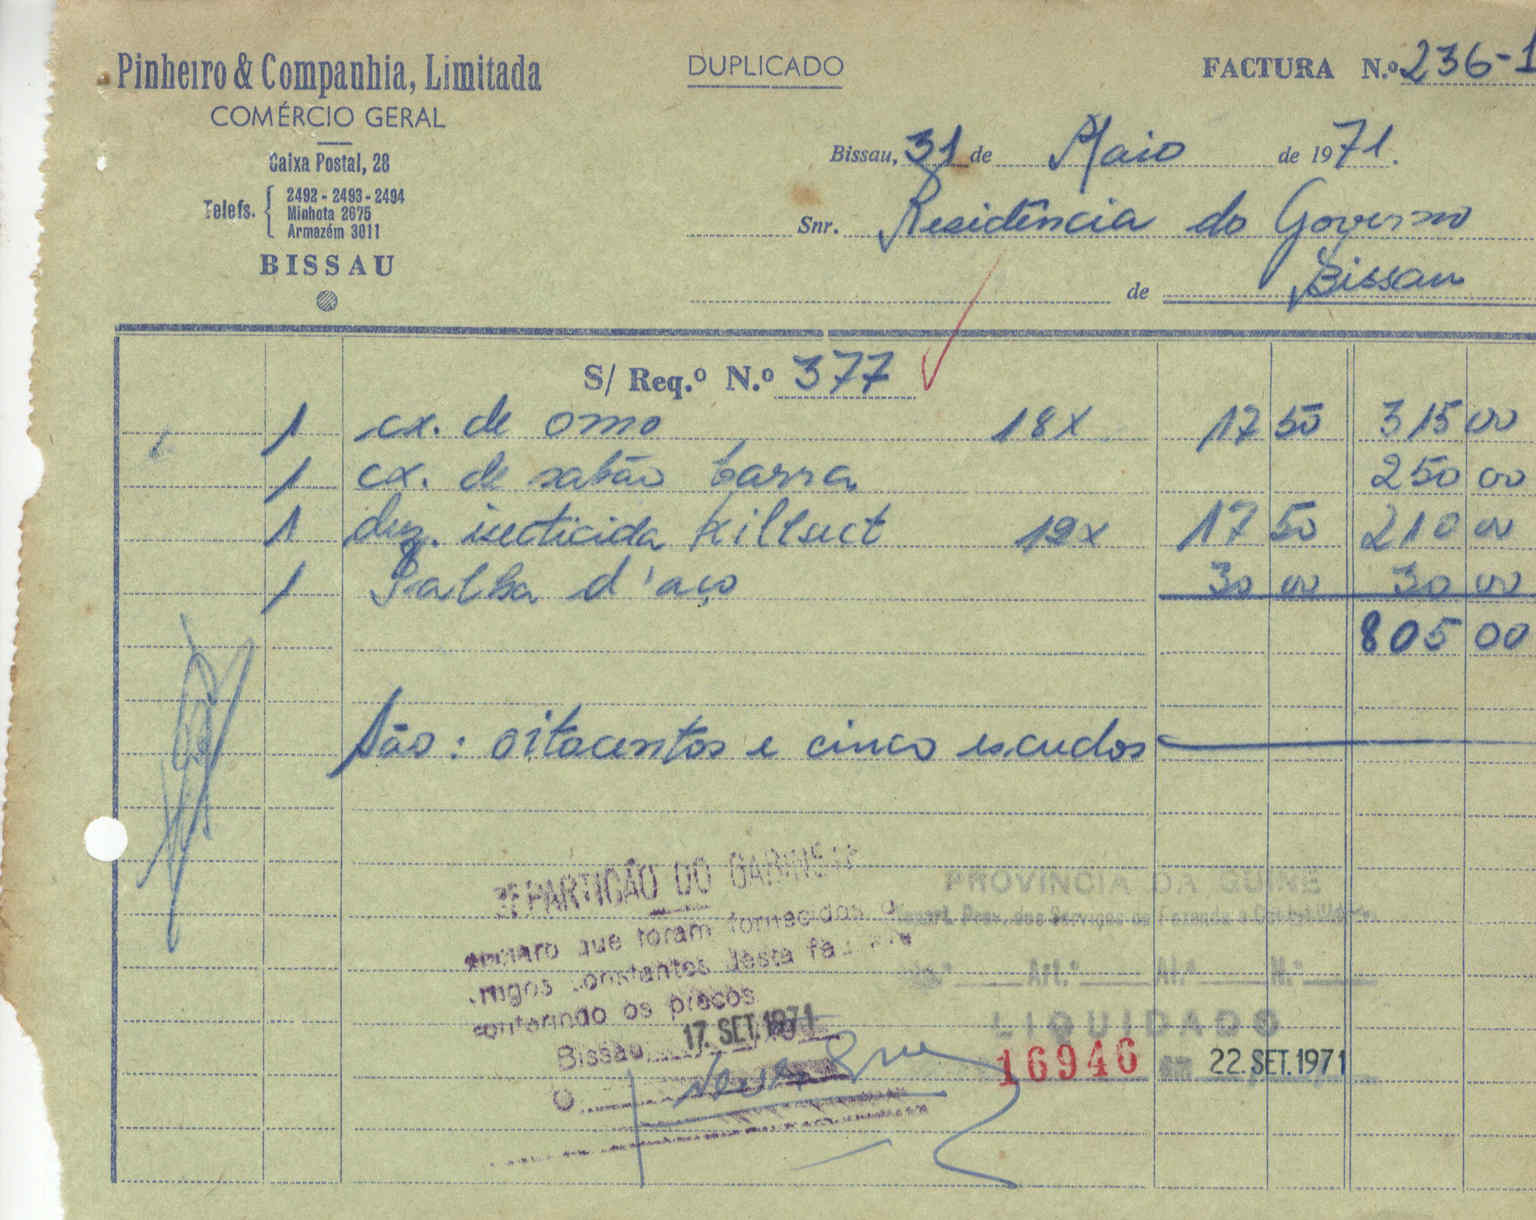 Pinheiro & Companhia, Limitada
COMÉRCIO GERAL
Caixa Postal, 28
Telefs. 2492 - 2493 - 2494
Minhota 2675
Armazém 3011
BISSAU
DUPLICADO
FACTURA N.º 236-1
Bissau, 31 de Maio de 1971.
Snr. Residência do Governo
de Bissau
S/ Req.º N.º 377
1 cx. de omo 18x 17 50 315 00
1 cx. de sabão barra 250 00
1 duz. isecticida Killsect 12x 17 50 210 00
1 Palha d'aço 30 00 30 00
805 00
São: oitocentos e cinco escudos
REPARTIÇÃO DO GABINETE
que foram fornecidos o
artigos constantes desta
conferindo os preços
Bissau, 17. SET. 1971
O
PROVINCIA DA GUINÉ
Repart. Prov. dos Serviços de Fazenda e Contabilidade
Art.º Al.ª N.º
LIQUIDADO
16946 em 22. SET. 1971